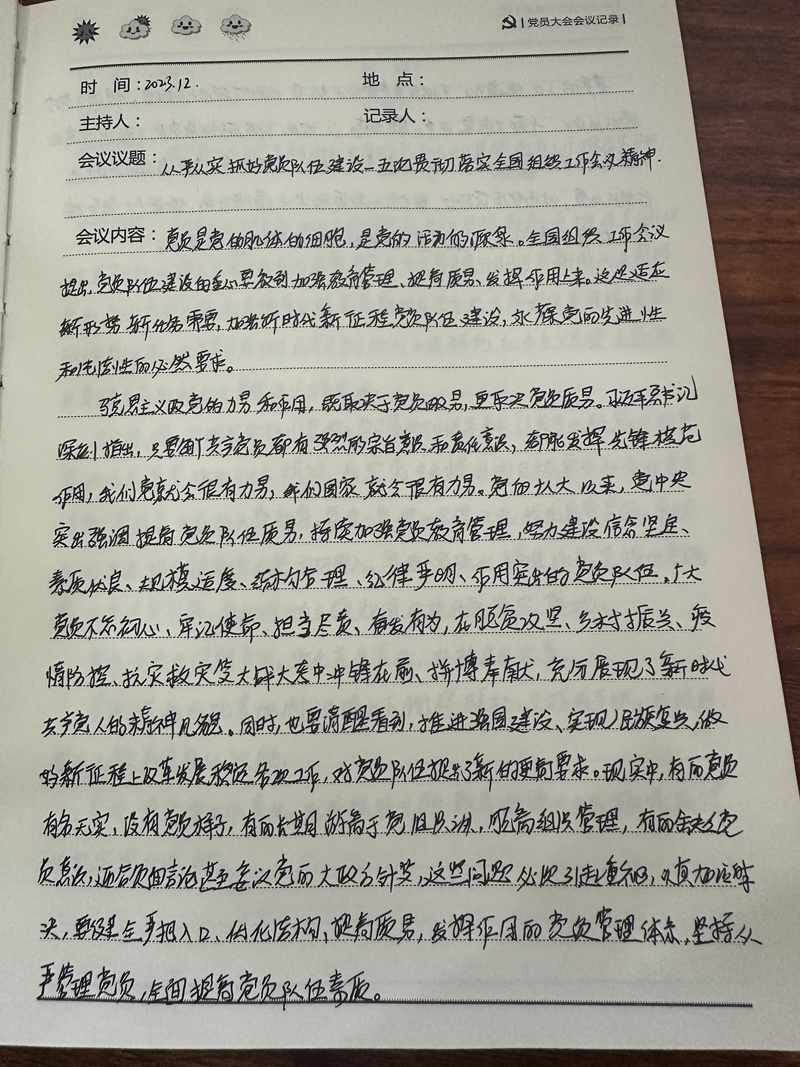 党员大会会议记录
时 间：2023.12. 地 点：
主持人： 记录人：
会议议题：从严从实抓好党员队伍建设一五论贯彻落实全国组织工作会议精神.
会议内容：党员是党的肌体的细胞，是党的活动的源泉。全国组织工作会议
提出，党员队伍建设的重心要放到加强教育管理、提高质易、发挥作用上来。这是适应
新形势新任务需要，加强新时代新征程党员队伍建设，永葆党的先进性
和纯洁性的必然要求。
马克思主义政党的力易和作用，既取决于党员数易，更取决党员质易。习近平总书记
深刻指出，只要每个共产党员都有强烈的宗旨意识和责任意识，都能发挥先锋模范
作用，我们党就会很有力易，我们国家就会很有力易。党的十八大以来，党中央
突出强调提高党员队伍质易，持续加强党员教育管理，努力建设信念坚定、
素质优良、规模适度、结构合理、纪律严明、作用突出的党员队伍。广大
党员不忘初心、牢记使命、担当尽责、奋发有为，在脱贫攻坚、乡村振兴、疫
情防控、抗灾救灾等大战大考中冲锋在前、拼博奉献，充分展现了新时代
共产党人的精神风貌。同时，也要清醒看到，推进强国建设、实现民族复兴，做
的新征程上改革发展稳定各项工作，对党员队伍提出了新的更高要求。现实中，有的党员
有名无实，没有党员样子，有的长期游离于党组织，脱离组织管理，有的缺乏党
员意识，还会负面言论甚至妄议党的大政方针等，这些问题必须引起重视，认真加以解
决，要健全严把入口、优化结构、提高质易，发挥作用的党员管理体系，坚持从
严管理党员，全面提高党员队伍素质。